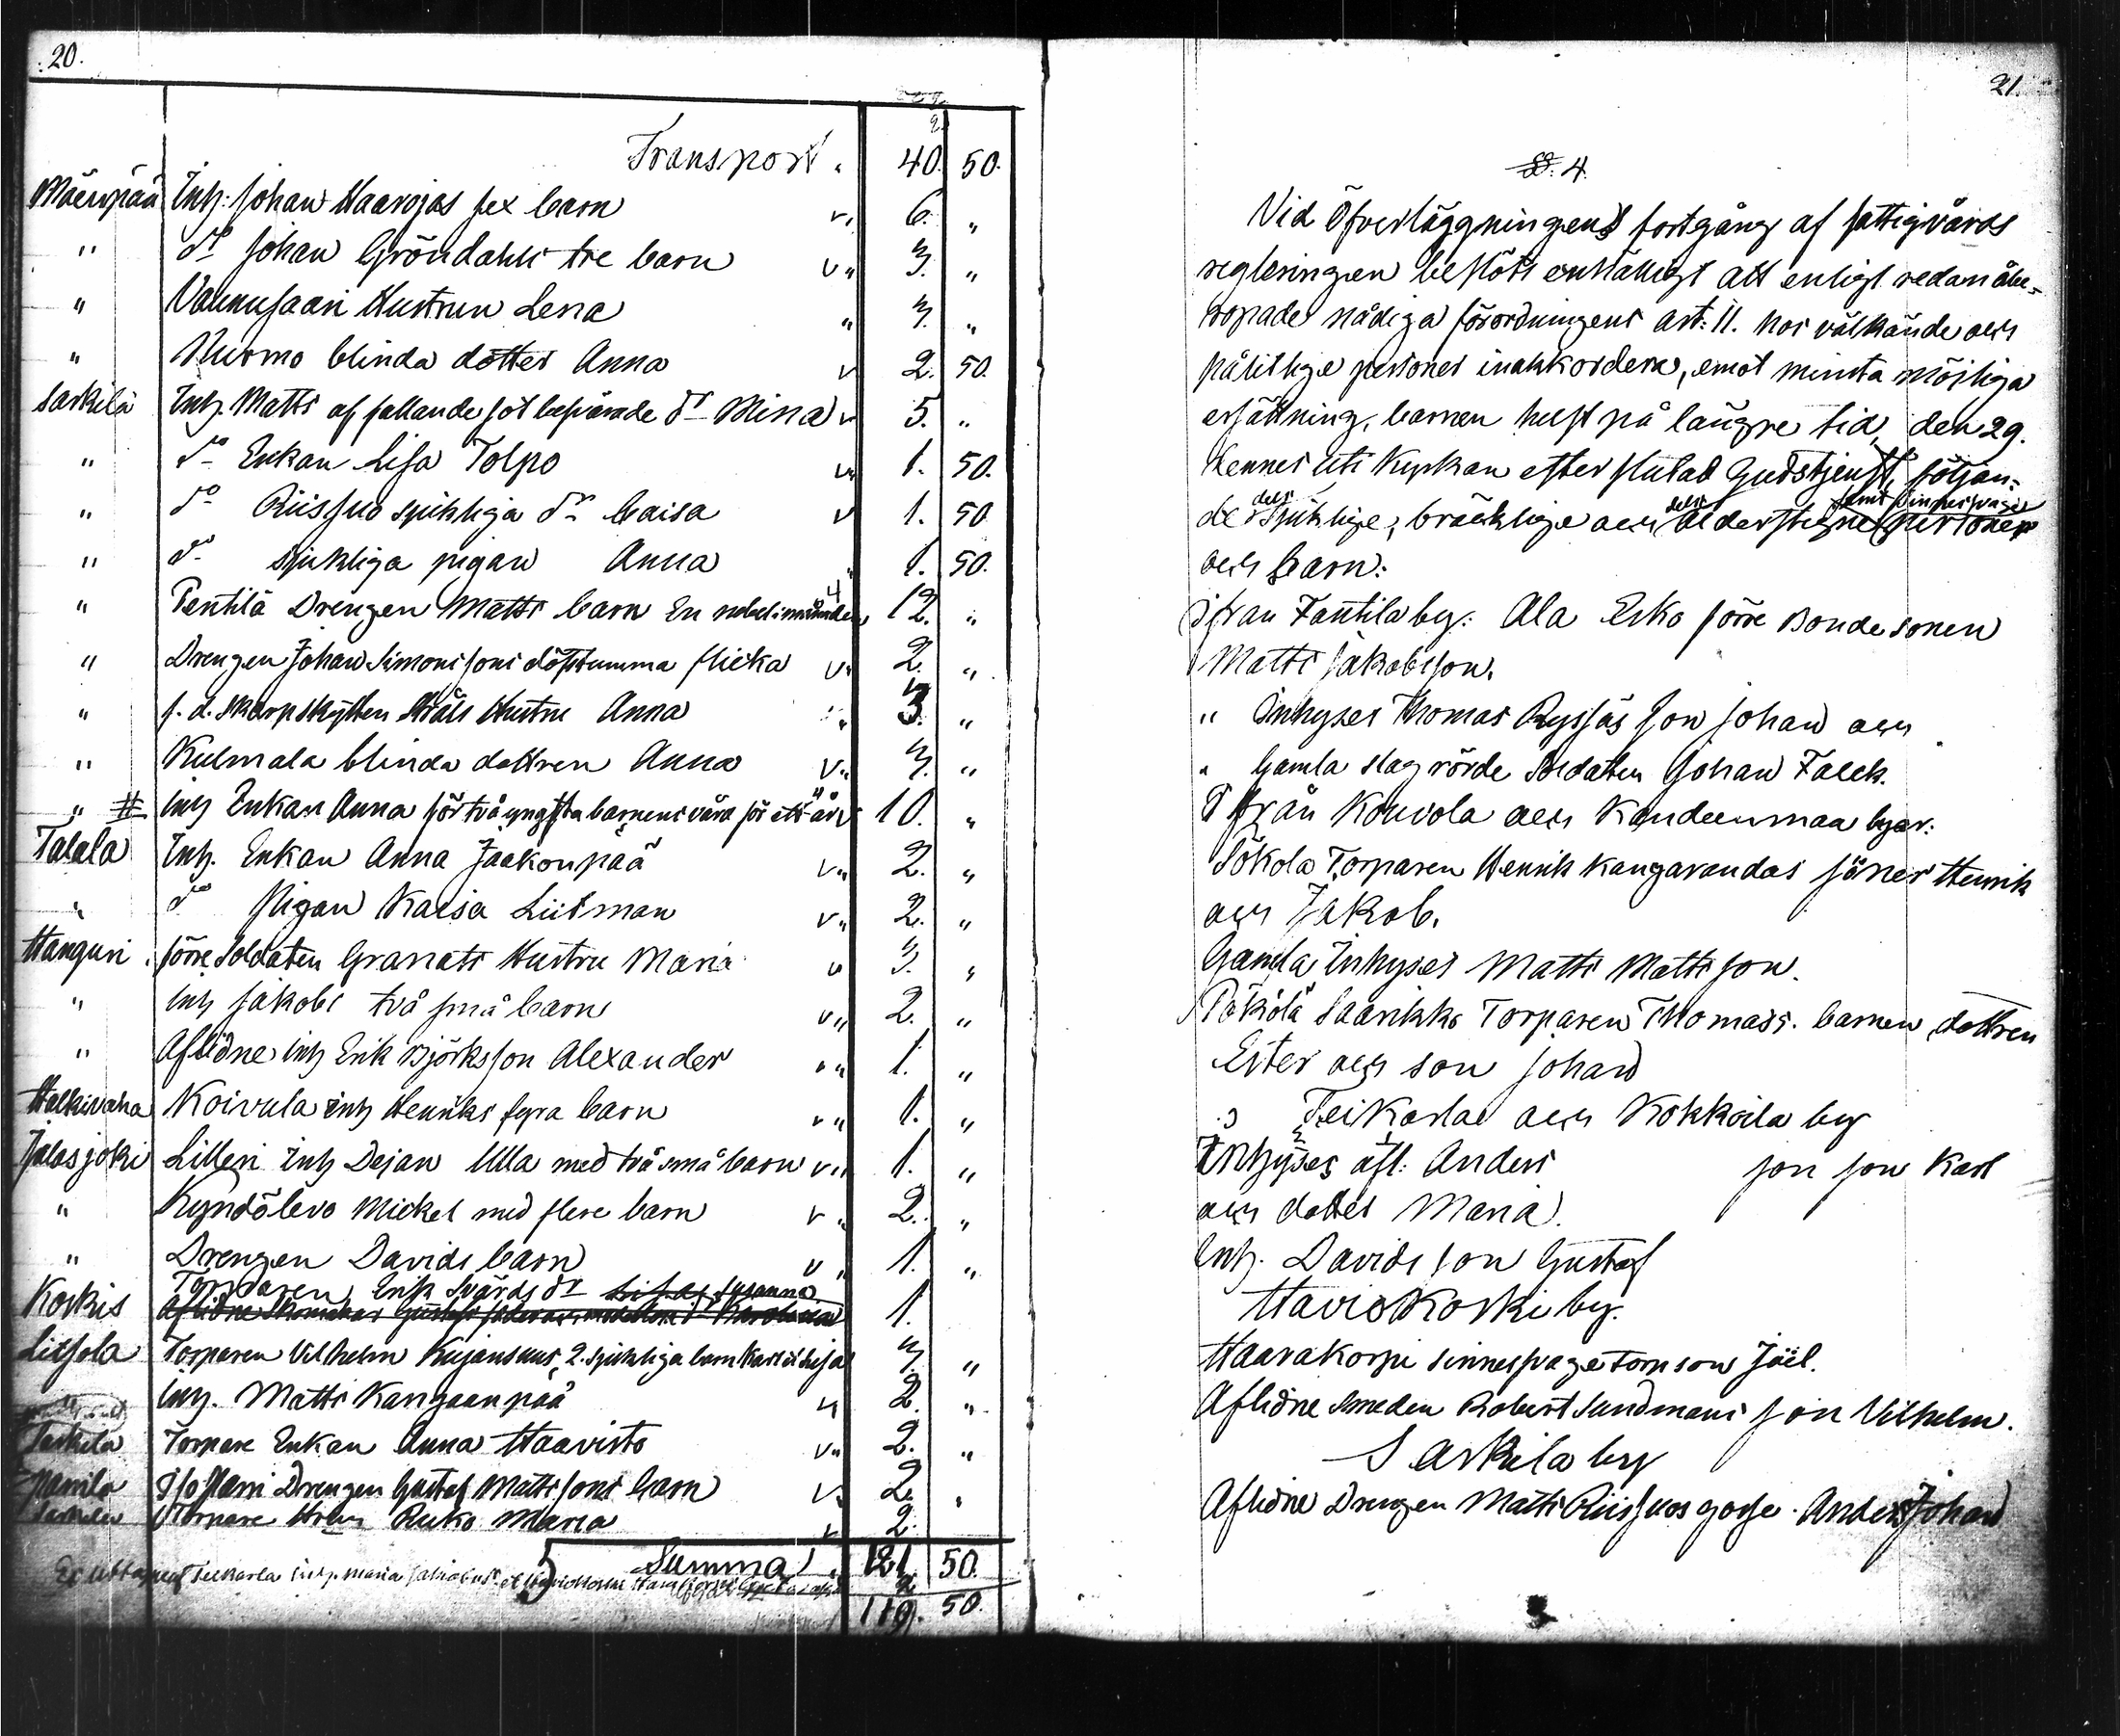 20.
Transport. 40. 50.
Mäenpää Inh: Johan Haarojas sex barn v. 6. "
" do Johan Gröndahls tre barn v " 3. "
" Vainusaari Hustrun Lena " 3. "
" Nurmo blinda dotter Anna v 2. 50.
Sarkila Inh. Matts af fallande sot besvärade dr Mina v 5. "
" do Enkan Lisa Tolpo v 1. 50.
" do Riissuo sjukliga dr Caisa v 1. 50
" do sjukliga pigan Anna " 1. 50.
" Pentilä Drengen Matts barn 4 12. "
" Drengen Johan Simonssons döfstumma flicka v " 2. "
" f.d. Skarpskytten Ståls Hustru Anna " 3. "
" Kulmala blinda dottren Anna v " 3. "
" # inh Enkan Anna för två yngsta barnens vård för ett år v 10. "
Talala Inh. Enkan Anna Jaakonpää v " 2. "
" do Pigan Kaisa Liitman v " 2. "
Hanguri förre Soldaten Granats Hustru Maria v 3. "
" inh Jakobs två små barn v " 2. "
" Aflidne inh Erik Björks son Alexander v " 1. "
Halkivaha Koivula inh Henriks fyra barn v " 1. "
Jalasjoki Lilleri inh Dejan Ulla med två små barn v " 1. "
" Kyndölevo Mickel med flere barn v " 2. "
" Drengen Davids barn v " 1. "
Torparen Erik Svärds dr Susanna
Koskis Aflidne 1.
Litsola Torparen Vilhelm Kujansuus 2. sjukliga barn Karl o Lisa 3. "
" inh. Matts Kangaanpää " 2. "
Torpare Enkan Anna Haavisto v " 2. "
Drengen Gustaf Mattssons barn v 2. "
Torpare Maria v 2.
Summa 121. 50.
2
119. 50.
21.
§§. 4.
Vid Öfverläggningens fortgång af fattigvårds
regleringen beslöts enhälligt att enligt redan åbe-
ropade nådiga förordningens art: 11. hos välkände och
pålitlige personer inackordera, emot minsta möjliga
ersättning, barnen helst på längre tid, den 29.
dennes uti Kyrkan efter slutad Gudstjenst, följan-
dels dels samt sinnessvage
de sjuklige, bräcklige och ålderstigne personer
och barn:
ifran Fantila by: Ala Esko förre Bondesonen
Matts Jakobsson.
" inhyses Thomas Ryssjäs son Johan och
" Gamla slagrörde Soldaten Johan Falck.
från Kouvola och Kandeenmaa byar:
Sökola Torparen Henrik Kangarandas söner Henrik
och Jakob.
Gamla Inhyses Matts Mattsson.
Pökölä Saarikko Torparen Thomas s. barnen, dottren
Ester och son Johan
" Teikarla och Kokkoila by
Inhyses afl: Anders son son Karl
och dotter Maria.
Inh. Davids son Gustaf
Haviokoski by.
Haavakorpi sinnessvage torp son Joël.
Aflidne Smeden Robert Sundmans son Vilhelm.
Sarkila by
Aflidne Drengen Matts Riissuos gosse Anders Johan
3